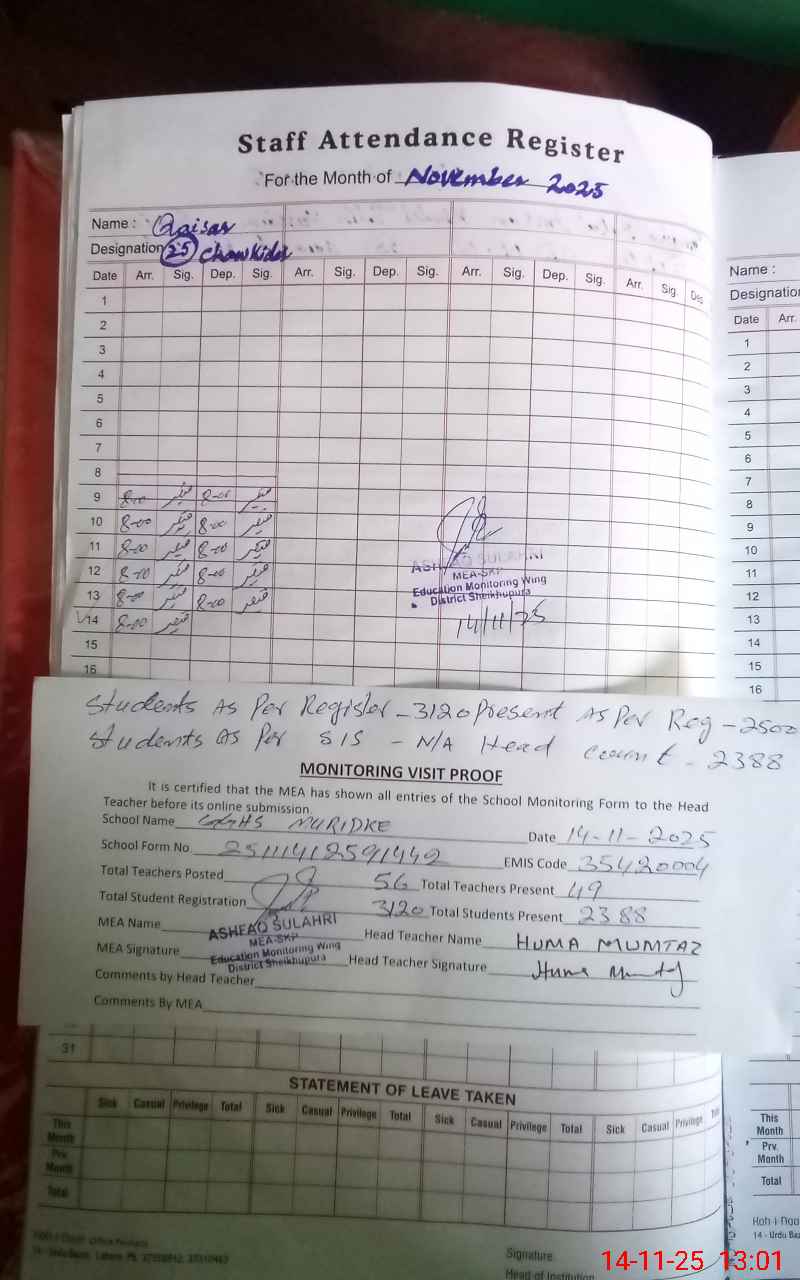 Staff Attendance Register
For the Month of November 2025
Name : Qaisar
Designation 25 Chowkidar
Date Arr. Sig. Dep. Sig. Arr. Sig. Dep. Sig. Arr. Sig. Dep. Sig. Arr. Sig. Dep
1
2
3
4
5
6
7
8
9 8-00 قیصر 8-00 قیصر
10 8-00 قیصر 8-00 قیصر
11 8-00 قیصر 8-00 قیصر
12 8-00 قیصر 8-00 قیصر
13 8-00 قیصر 8-00 قیصر
14 8-00 قیصر
15
16
ASHFAQ SULAHRI
MEA-SKP
Education Monitoring Wing
District Sheikhupura
14/11/25
Name :
Designation
Date Arr.
1
2
3
4
5
6
7
8
9
10
11
12
13
14
15
16
Students As Per Register - 3120 Present As Per Reg - 2500
Students as Per SIS - N/A Head count - 2388
MONITORING VISIT PROOF
It is certified that the MEA has shown all entries of the School Monitoring Form to the Head
Teacher before its online submission.
School Name GGHS MURIDKE Date 14-11-2025
School Form No. 25111412591442 EMIS Code 35420004
Total Teachers Posted 56 Total Teachers Present 49
Total Student Registration 3120 Total Students Present 2388
MEA Name ASHFAQ SULAHRI Head Teacher Name HUMA MUMTAZ
MEA-SKP
Education Monitoring Wing
District Sheikhupura
MEA Signature Head Teacher Signature Huma Mumtaz
Comments by Head Teacher
Comments By MEA
31
STATEMENT OF LEAVE TAKEN
Sick Casual Privilege Total Sick Casual Privilege Total Sick Casual Privilege Total Sick Casual Privilege
This Month
Prv. Month
Total
This Month
Prv. Month
Total
Signature
Head of Institution
14 - Urdu Baz
14-11-25 13:01